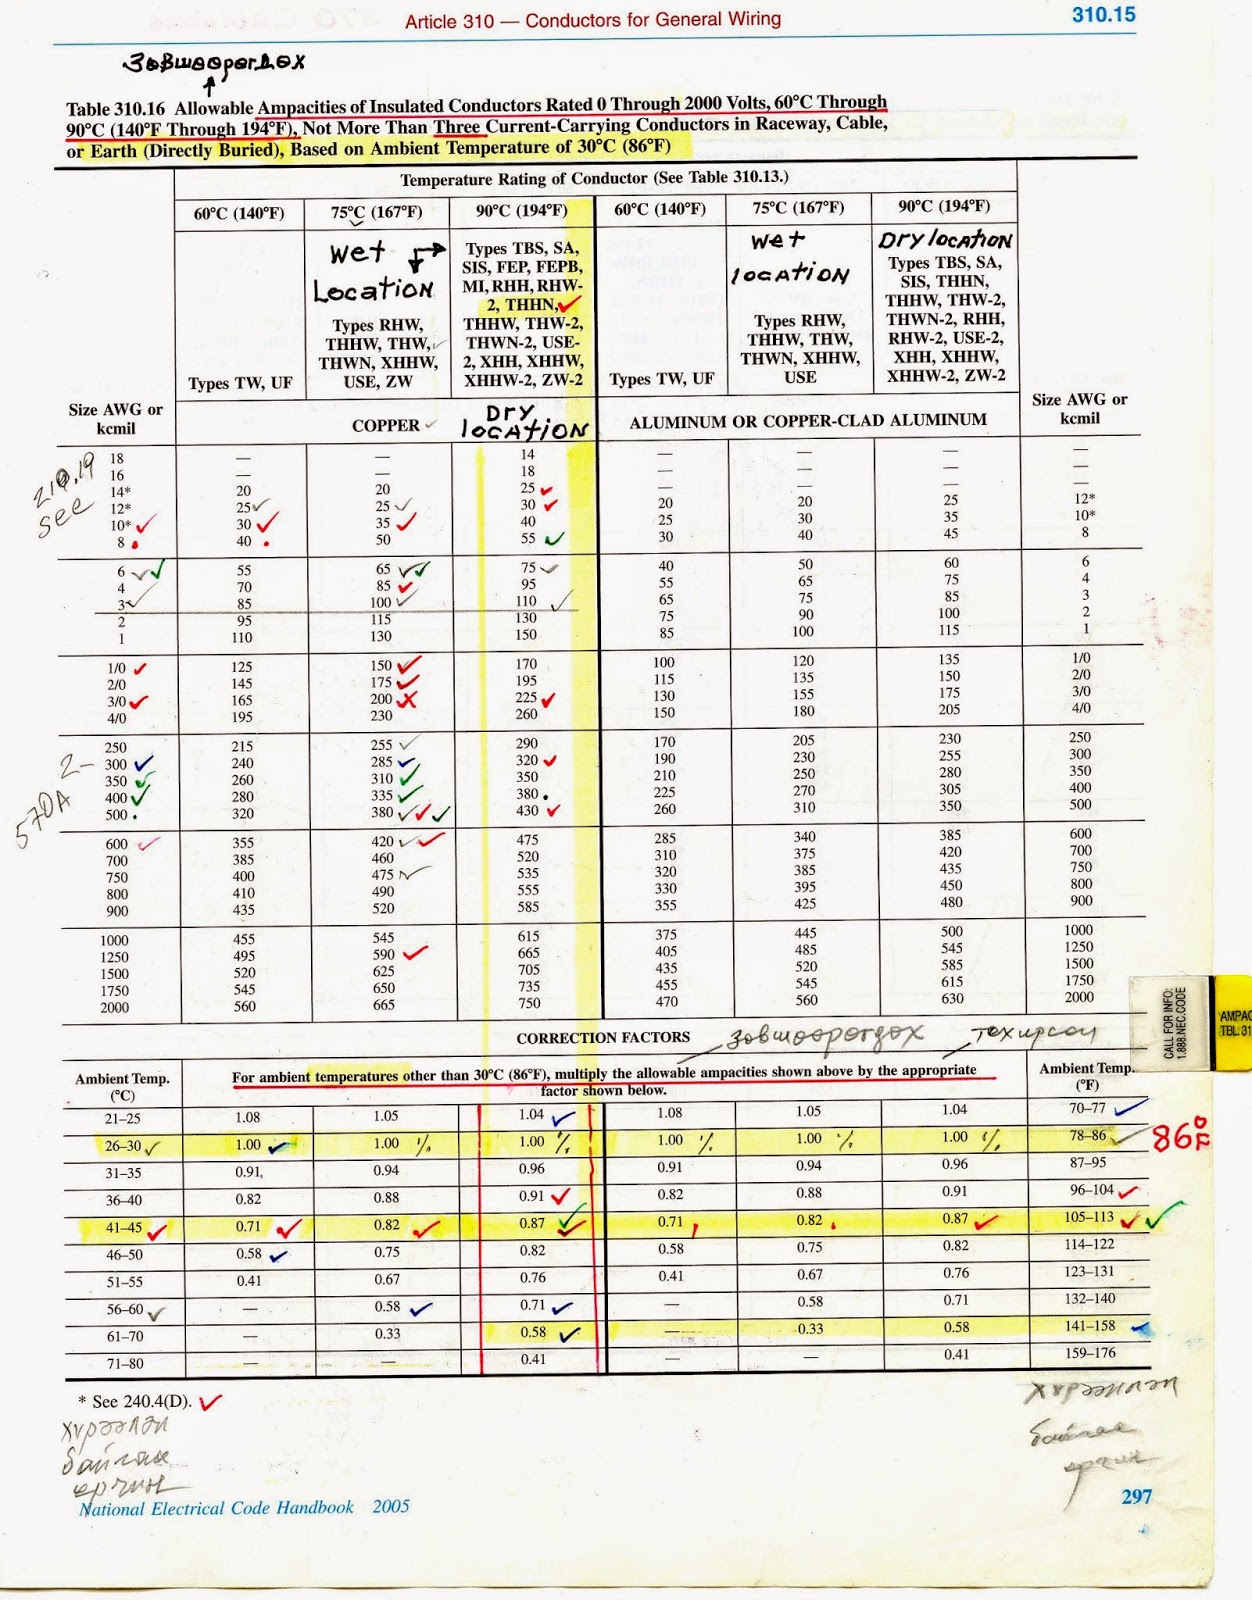 Article 310 — Conductors for General Wiring
310.15
зөвшөөрөгдөх
Table 310.16 Allowable Ampacities of Insulated Conductors Rated 0 Through 2000 Volts, 60°C Through
90°C (140°F Through 194°F), Not More Than Three Current-Carrying Conductors in Raceway, Cable,
or Earth (Directly Buried), Based on Ambient Temperature of 30°C (86°F)
Temperature Rating of Conductor (See Table 310.13.)
60°C (140°F) 75°C (167°F) 90°C (194°F) 60°C (140°F) 75°C (167°F) 90°C (194°F)
Wet
Location
Types RHW,
THHW, THW,
THWN, XHHW,
USE, ZW
Types TBS, SA,
SIS, FEP, FEPB,
MI, RHH, RHW-
2, THHN,
THHW, THW-2,
THWN-2, USE-
2, XHH, XHHW,
XHHW-2, ZW-2
Wet
location
Types RHW,
THHW, THW,
THWN, XHHW,
USE
Dry location
Types TBS, SA,
SIS, THHN,
THHW, THW-2,
THWN-2, RHH,
RHW-2, USE-2,
XHH, XHHW,
XHHW-2, ZW-2
Types TW, UF
Types TW, UF
Size AWG or
kcmil
COPPER
Dry
location
ALUMINUM OR COPPER-CLAD ALUMINUM
Size AWG or
kcmil
18 — — 14 — — —
16 — — 18 — — —
14* 20 20 25 — — —
12* 25 25 30 20 20 25 12*
10* 30 35 40 25 30 35 10*
8 40 50 55 30 40 45 8
210.19
see
6 55 65 75 40 50 60 6
4 70 85 95 55 65 75 4
3 85 100 110 65 75 85 3
2 95 115 130 75 90 100 2
1 110 130 150 85 100 115 1
1/0 125 150 170 100 120 135 1/0
2/0 145 175 195 115 135 150 2/0
3/0 165 200 225 130 155 175 3/0
4/0 195 230 260 150 180 205 4/0
250 215 255 290 170 205 230 250
2- 300 240 285 320 190 230 255 300
350 260 310 350 210 250 280 350
400 280 335 380 225 270 305 400
500 320 380 430 260 310 350 500
570A
600 355 420 475 285 340 385 600
700 385 460 520 310 375 420 700
750 400 475 535 320 385 435 750
800 410 490 555 330 395 450 800
900 435 520 585 355 425 480 900
1000 455 545 615 375 445 500 1000
1250 495 590 665 405 485 545 1250
1500 520 625 705 435 520 585 1500
1750 545 650 735 455 545 615 1750
2000 560 665 750 470 560 630 2000
CALL FOR INFO:
1.888.NEC.CODE
AMPAC
TBL 31
CORRECTION FACTORS зөвшөөрөгдөх
Ambient Temp.
(°C)
For ambient temperatures other than 30°C (86°F), multiply the allowable ampacities shown above by the appropriate
factor shown below.
Ambient Temp.
(°F)
21–25 1.08 1.05 1.04 1.08 1.05 1.04 70–77
26–30 1.00 1.00 % 1.00 % 1.00 % 1.00 % 1.00 % 78–86 86°F
31–35 0.91 0.94 0.96 0.91 0.94 0.96 87–95
36–40 0.82 0.88 0.91 0.82 0.88 0.91 96–104
41–45 0.71 0.82 0.87 0.71 0.82 0.87 105–113
46–50 0.58 0.75 0.82 0.58 0.75 0.82 114–122
51–55 0.41 0.67 0.76 0.41 0.67 0.76 123–131
56–60 — 0.58 0.71 — 0.58 0.71 132–140
61–70 — 0.33 0.58 — 0.33 0.58 141–158
71–80 — — 0.41 — — 0.41 159–176
* See 240.4(D).
хүрээлэн
байгаа
орчин
хүрээлэн
байгаа
орчин
National Electrical Code Handbook 2005
297